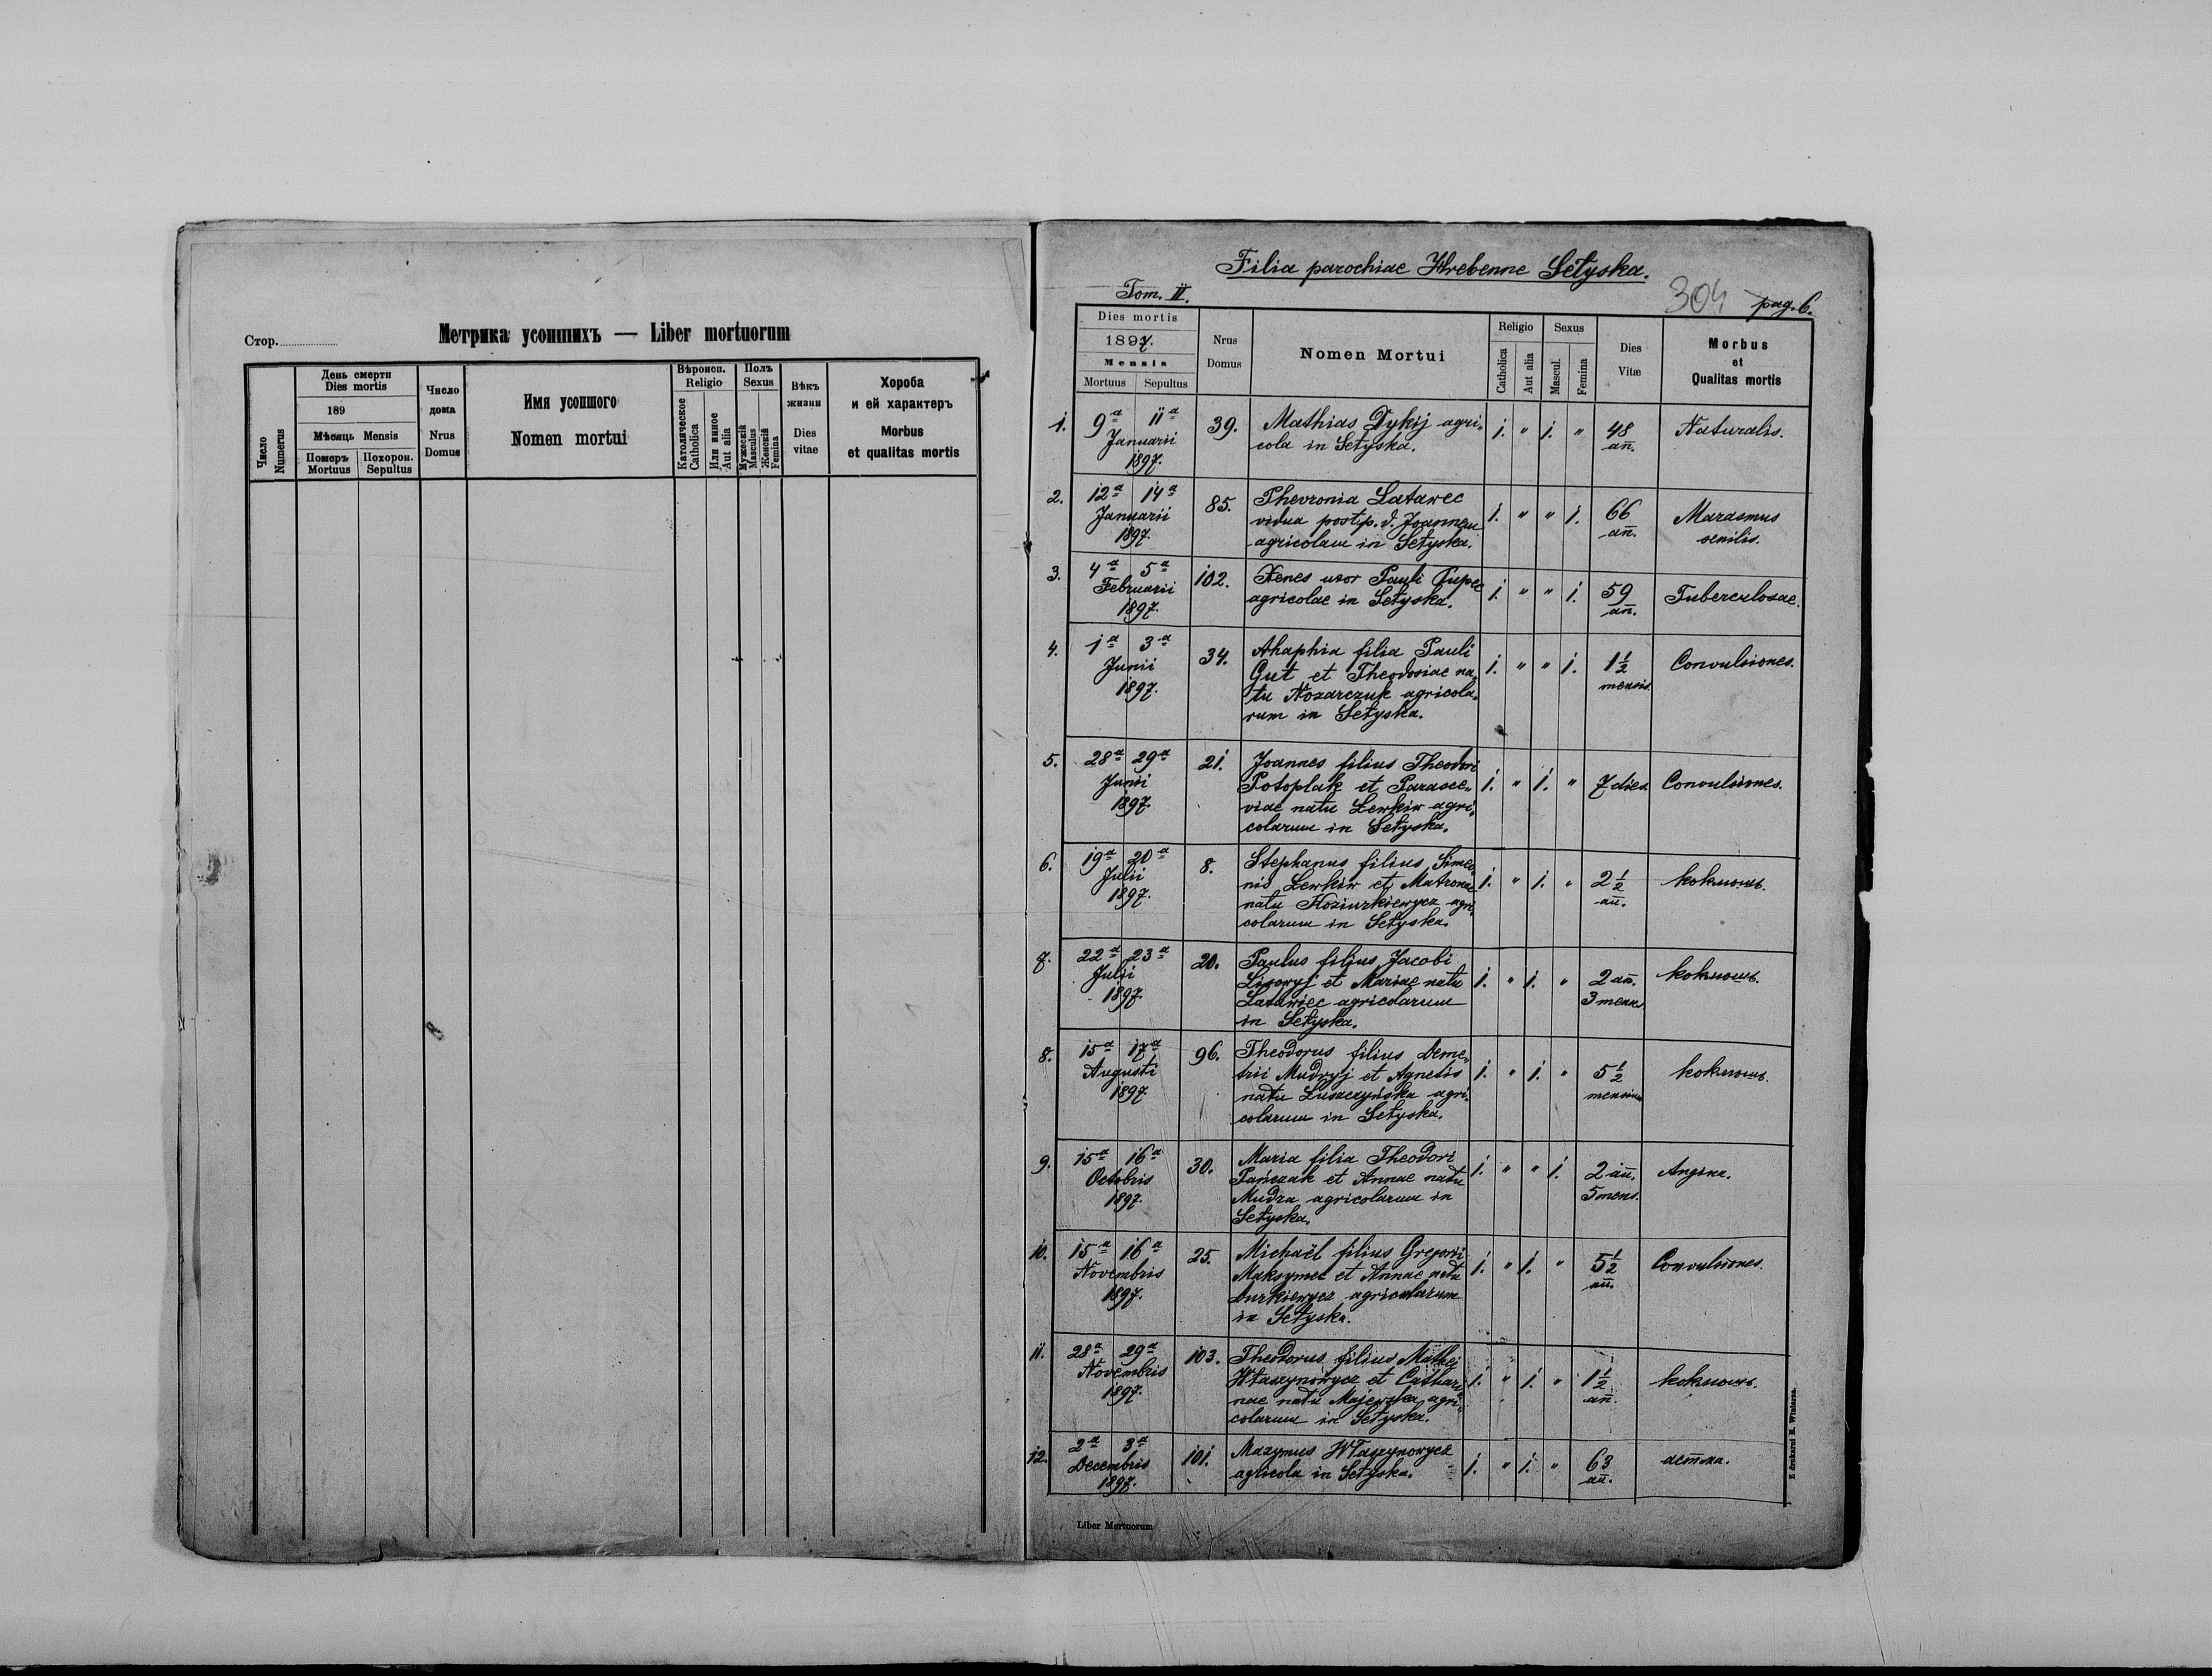 Стор.
Метрика усопшихъ — Liber mortuorum
Число
Numerus
День смерти
Dies mortis
189
Мѣсяць Mensis
Померъ
Mortuus
Похорон.
Sepultus
Число
дома
Nrus
Domus
Имя усопшого
Nomen mortui
Вѣроисп.
Religio
Католическое
Catholica
Или иное
Aut alia
Полъ
Sexus
Мужескій
Masculus
Женскій
Femina
Вѣкъ
жизни
Dies
vitae
Хороба
и ей характеръ
Morbus
et qualitas mortis
Filia parochiae Hrebenne Sełyska.
Tom. II.
304
pag. 6.
Dies mortis
1897.
Mensis
Mortuus
Sepultus
Nrus
Domus
Nomen Mortui
Religio
Catholica
Aut alia
Sexus
Mascul.
Femina
Dies
Vitæ
Morbus
et
Qualitas mortis
1. 9a 11a 39. Mathias Dykij agri- 1. " 1. " 48 Naturalis.
Januarii cola in Sełyska. an̄.
1897.
2. 12a 14a 85. Phevronia Latawec 1. " " 1. 66 Marasmus
Januarii vidua post p. d. Joannem an̄. senilis.
1897. agricolam in Sełyska.
3. 4a 5a 102. Xenes uxor Pauli 1. " " 1. 59 Tuberculosae.
Februarii agricolae in Sełyska. an̄.
1897.
4. 1a 3a 34. Ahaphia filia Pauli 1. " " 1. 1 1/2 Convulsiones.
Junii Gut et Theodosiae na- mensis.
1897. tu Nozarczuk agricola-
rum in Sełyska.
5. 28a 29a 21. Joannes filius Theodori 1. " 1. " 7 dies. Convulsiones.
Junii Potoplak et Parasce-
1897. viae natu Lewkiw agri-
colarum in Sełyska.
6. 19a 20a 8. Stephanus filius Simeo- 1. " 1. " 2 1/2 коклюшъ.
Julii nis Lewkiw et Matronae an̄.
1897. natu agri-
colarum in Sełyska.
7. 22a 23a 20. Paulus filius Jacobi 1. " 1. " 2 an̄. коклюшъ.
Julii Lisowyj et Mariae natu 3 mens.
1897. Latawiec agricolarum
in Sełyska.
8. 15a 17a 96. Theodorus filius Deme- 1. " 1. " 5 1/2 коклюшъ.
Augusti trii Mudryj et Agnetis mensium
1897. natu Łuszczyńska agri-
colarum in Sełyska.
9. 15a 16a 30. Maria filia Theodori 1. " " 1. 2 an̄. Angina.
Octobris Pańczak et Annae natu 5 mens.
1897. Mudra agricolarum in
Sełyska.
10. 15a 16a 25. Michaël filius Gregorii 1. " 1. " 5 1/2 Convulsiones.
Novembris Maksymec et Annae natu an̄.
1897. Durkiewycz agricolarum
in Sełyska.
11. 28a 29a 103. Theodorus filius 1. " 1. " 1 1/2 коклюшъ.
Novembris Właszynowycz et Cathari- an̄.
1897. nae natu Majewska agri-
colarum in Sełyska.
12. 2a 3a 101. Maxymus Właszynowycz 1. " 1. " 63 астма.
Decembris agricola in Sełyska. an̄.
1897.
Liber Mortuorum
Z drukarni E. Winiarza.